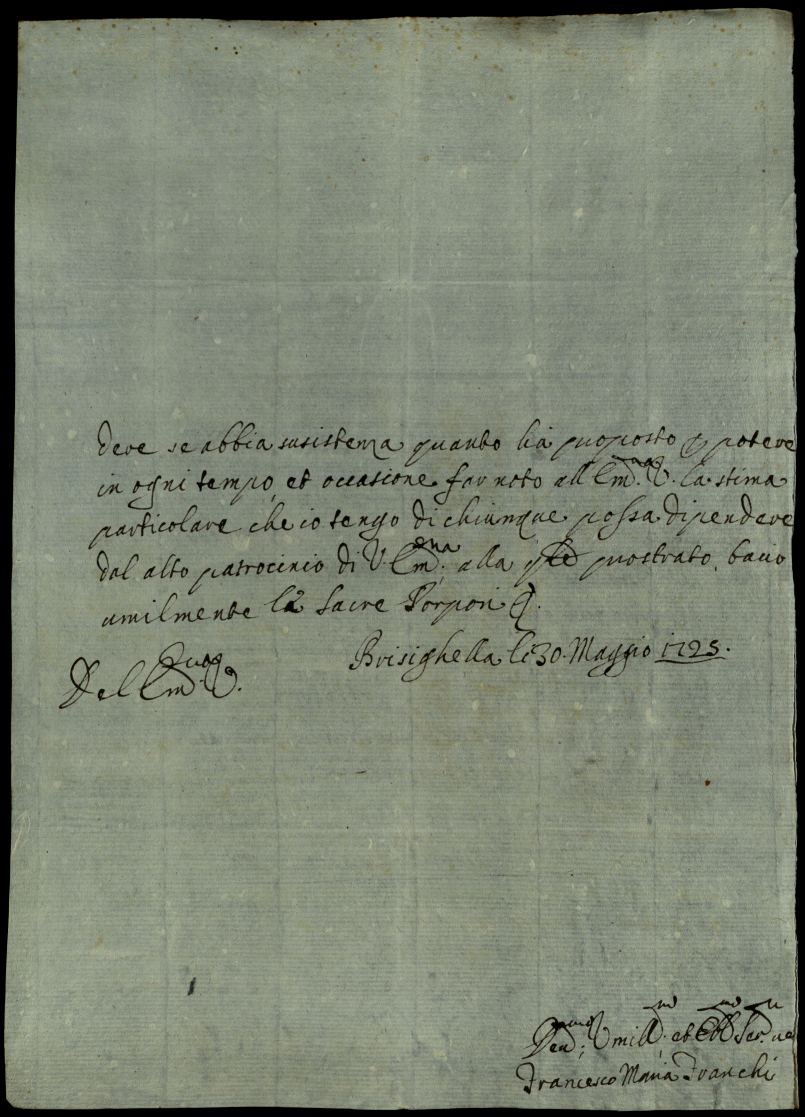 deve se abbia susistenza quanto hà proposto p potere
in ogni tempo, et occasione far noto all Em.^{nza} V. la stima
particolare che io tengo di chiunque possa dipendere
dal alto patrocinio di V Em^{nza}. alla q^{le} prostrato, bacio
umilmente la Sacre Porpori
Brisighella li 30. Maggio 1725.
Del Em^{nza} V.
Umil^{mo}. et Obb^{mo} Ser.^{re}
Francesco Maria Franchi